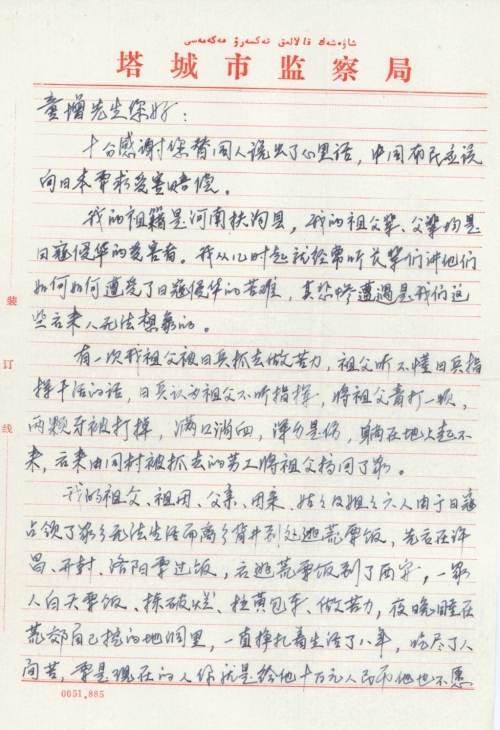 شاۋەشەك قالالىق تەكسەرۋ مەكەمەسى
塔城市监察局
童增先生您好：
十分感谢您替国人说出了心里话，中国市民应该
向日本要求受害赔偿。
我的祖籍是河南扶沟县，我的祖父辈、父辈均是
日寇侵华的受害者。我从儿时起就经常听长辈们讲他们
如何如何遭受了日寇侵华的苦难，其悲惨遭遇是我们这
些后来人无法想象的。
有一次我祖父被日兵抓去做苦力，祖父听不懂日兵指
挥干活的话，日兵认为祖父不听指挥，将祖父毒打一顿，
两颗牙被打掉，满口淌血，浑身是伤，躺在地上起不
来，后来由同村被抓去的劳工将祖父抬回了家。
我的祖父、祖母、父亲、母亲、姑姑及姐姐六人由于日寇
占领了家乡无法生活而离乡背井到处逃荒要饭，先后在许
昌、开封、洛阳要过饭，后逃荒要饭到了西安，一家
人白天要饭、拣破烂、拉黄包车、做苦力，夜晚睡在
荒郊自己挖的地洞里，一直挣扎着生活了八年，吃尽了人
间苦，要是现在的人你就是给他十万元人民币他也不愿
装
订
线
0051.885